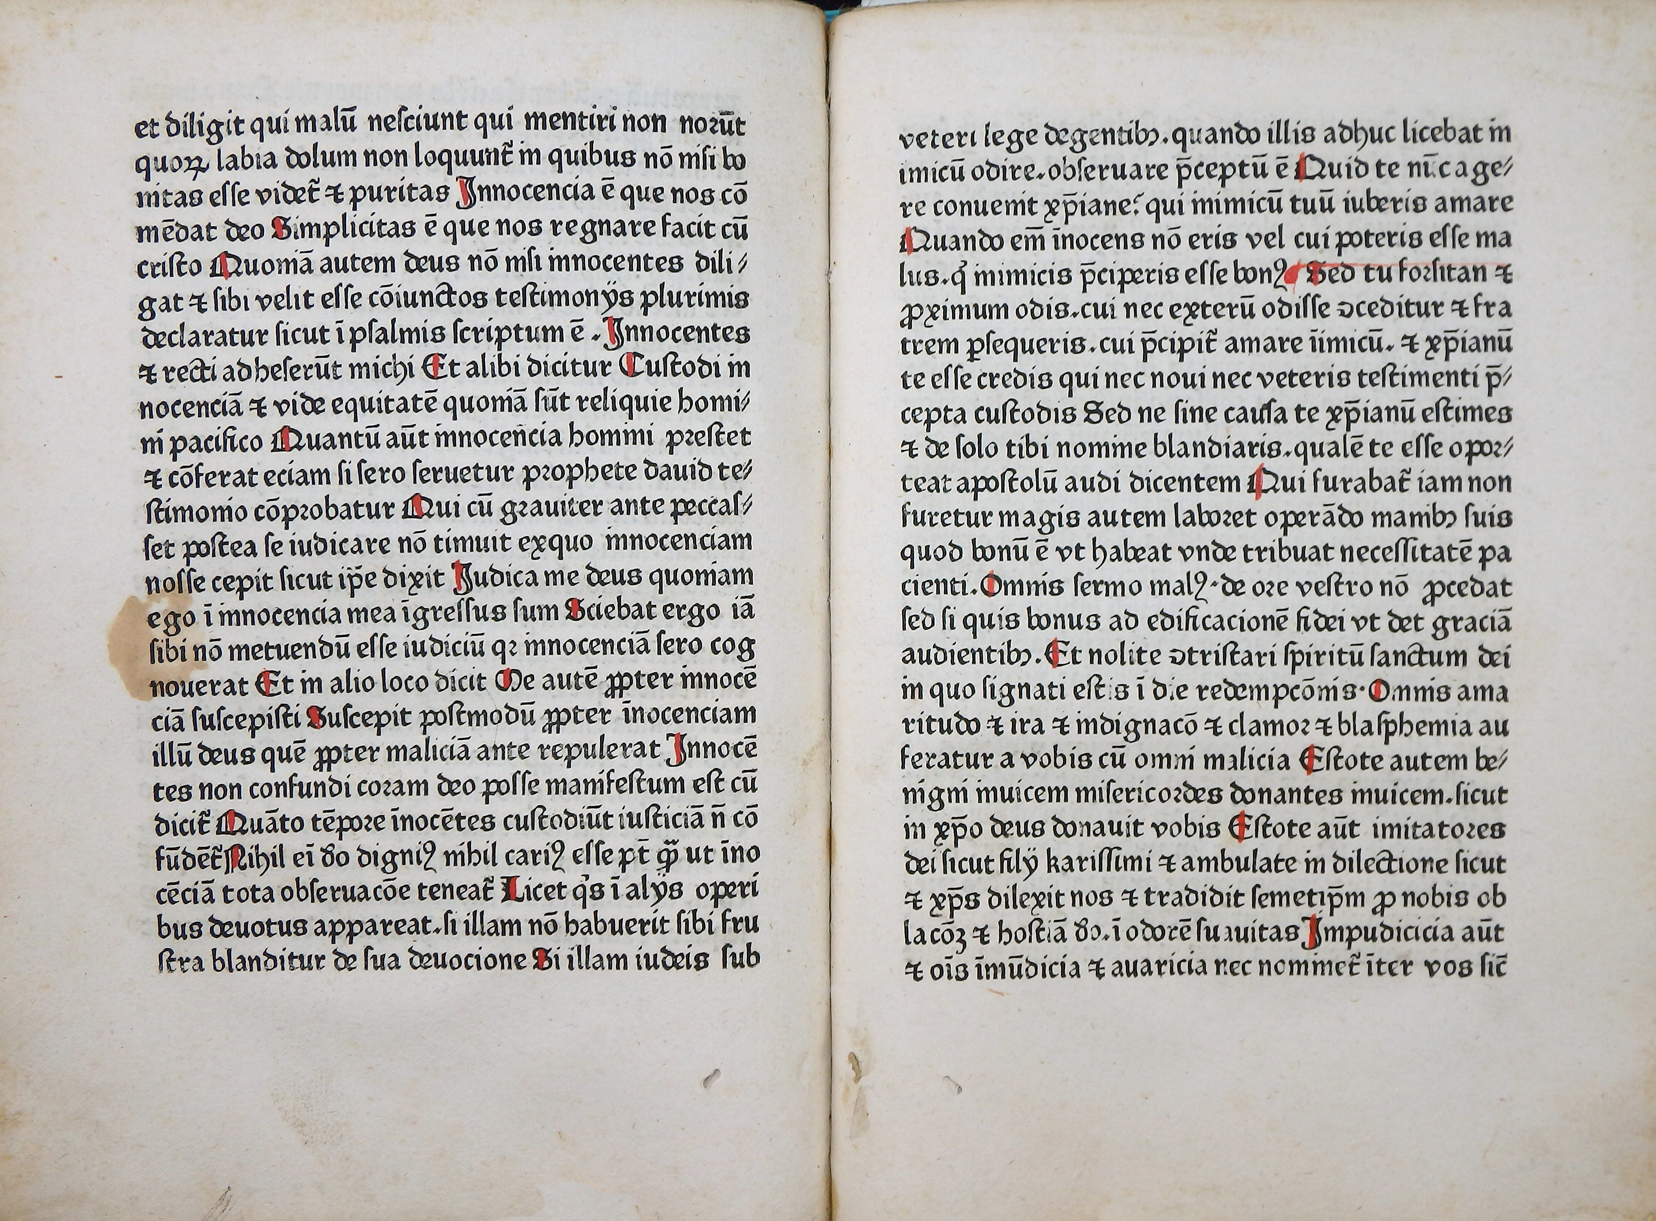 et diligit qui malū nesciunt qui mentiri non norūt
quoꝝ labia dolum non loquunt᷑ in quibus nō nisi bo
nitas esse videt᷑ ⁊ puritas Innocencia ē que nos cō
mēdat deo Simplicitas ē que nos regnare facit cū
cristo Quoniā autem deus nō nisi innocentes dili⸗
gat ⁊ sibi velit esse cōiunctos testimonijs plurimis
declaratur sicut ī psalmis scriptum ē . Innocentes
⁊ recti adheserūt michi Et alibi dicitur Custodi in
nocenciā ⁊ vide equitatē quoniā sūt reliquie homi⸗
ni pacifico Quantū aūt innocencia homini prestet
⁊ cōferat eciam si sero seruetur prophete dauid te⸗
stimonio cōprobatur Qui cū grauiter ante peccas⸗
set postea se iudicare nō timuit exquo innocenciam
nosse cepit sicut ip̄e dixit Judica me deus quoniam
ego ī innocencia mea īgressus sum Sciebat ergo iā
sibi nō metuendū esse iudiciū qꝛ innocenciā sero cog
nouerat Et in alio loco dicit Me autē ꝓpter innocē
ciā suscepisti Suscepit postmodū ꝓpter īnocenciam
illū deus quē ꝓpter maliciā ante repulerat Innocē
tes non confundi coram deo posse manifestum est cū
dicit᷑ Quāto tēpore īnocētes custodiūt iusticiā n̄ cō
fūdēt᷑ Nihil ei ꝟo digniꝰ nihil cariꝰ esse pt̄ qꝫ̄ ut īno
cēciā tota obseruacōe teneat᷑ Licet qͥs ī alijs operi
bus deuotus appareat.si illam nō habuerit sibi fru
stra blanditur de sua deuocione Si illam iudeis sub
veteri lege degentibꝫ.quando illis adhuc licebat in
imicū odire.obseruare p̄ceptū ē Quid te nūc age⸗
re conuenit xp̄iane? qui inimicū tuū iuberis amare
Quando em̄ īnocens nō eris vel cui poteris esse ma
lus.qͥ inimicis p̄ciperis esse bonꝰ Sed tu forsitan ⁊
ꝓximum odis.cui nec exterū odisse ↄceditur ⁊ fra
trem ꝑsequeris.cui p̄cipit᷑ amare īimicū. ⁊ xp̄ianū
te esse credis qui nec noui nec veteris testimenti p̄⸗
cepta custodis Sed ne sine causa te xp̄ianū estimes
⁊ de solo tibi nomine blandiaris.qualē te esse opor⸗
teat apostolū audi dicentem Qui furabat᷑ iam non
furetur magis autem laboret operādo manibꝫ suis
quod bonū ē vt habeat vnde tribuat necessitatē pa
cienti.Omnis sermo malꝰ.de ore vestro nō ꝓcedat
sed si quis bonus ad edificacionē fidei vt det graciā
audientibꝫ.Et nolite ↄtristari spiritū sanctum dei
in quo signati estis ī die redempcōnis.Omnis ama
ritudo ⁊ ira ⁊ indignacō ⁊ clamor ⁊ blasphemia au
feratur a vobis cū omni malicia Estote autem be⸗
nigni inuicem misericordes donantes inuicem.sicut
in xp̄o deus donauit vobis Estote aūt imitatores
dei sicut filij karissimi ⁊ ambulate in dilectione sicut
⁊ xp̄s dilexit nos ⁊ tradidit semetip̄m ꝓ nobis ob
lacōꝫ ⁊ hostiā ꝟo.ī odorē suauitas Impudicicia aūt
⁊ oīs īmūdicia ⁊ auaricia nec nominet᷑ īter vos sic̄